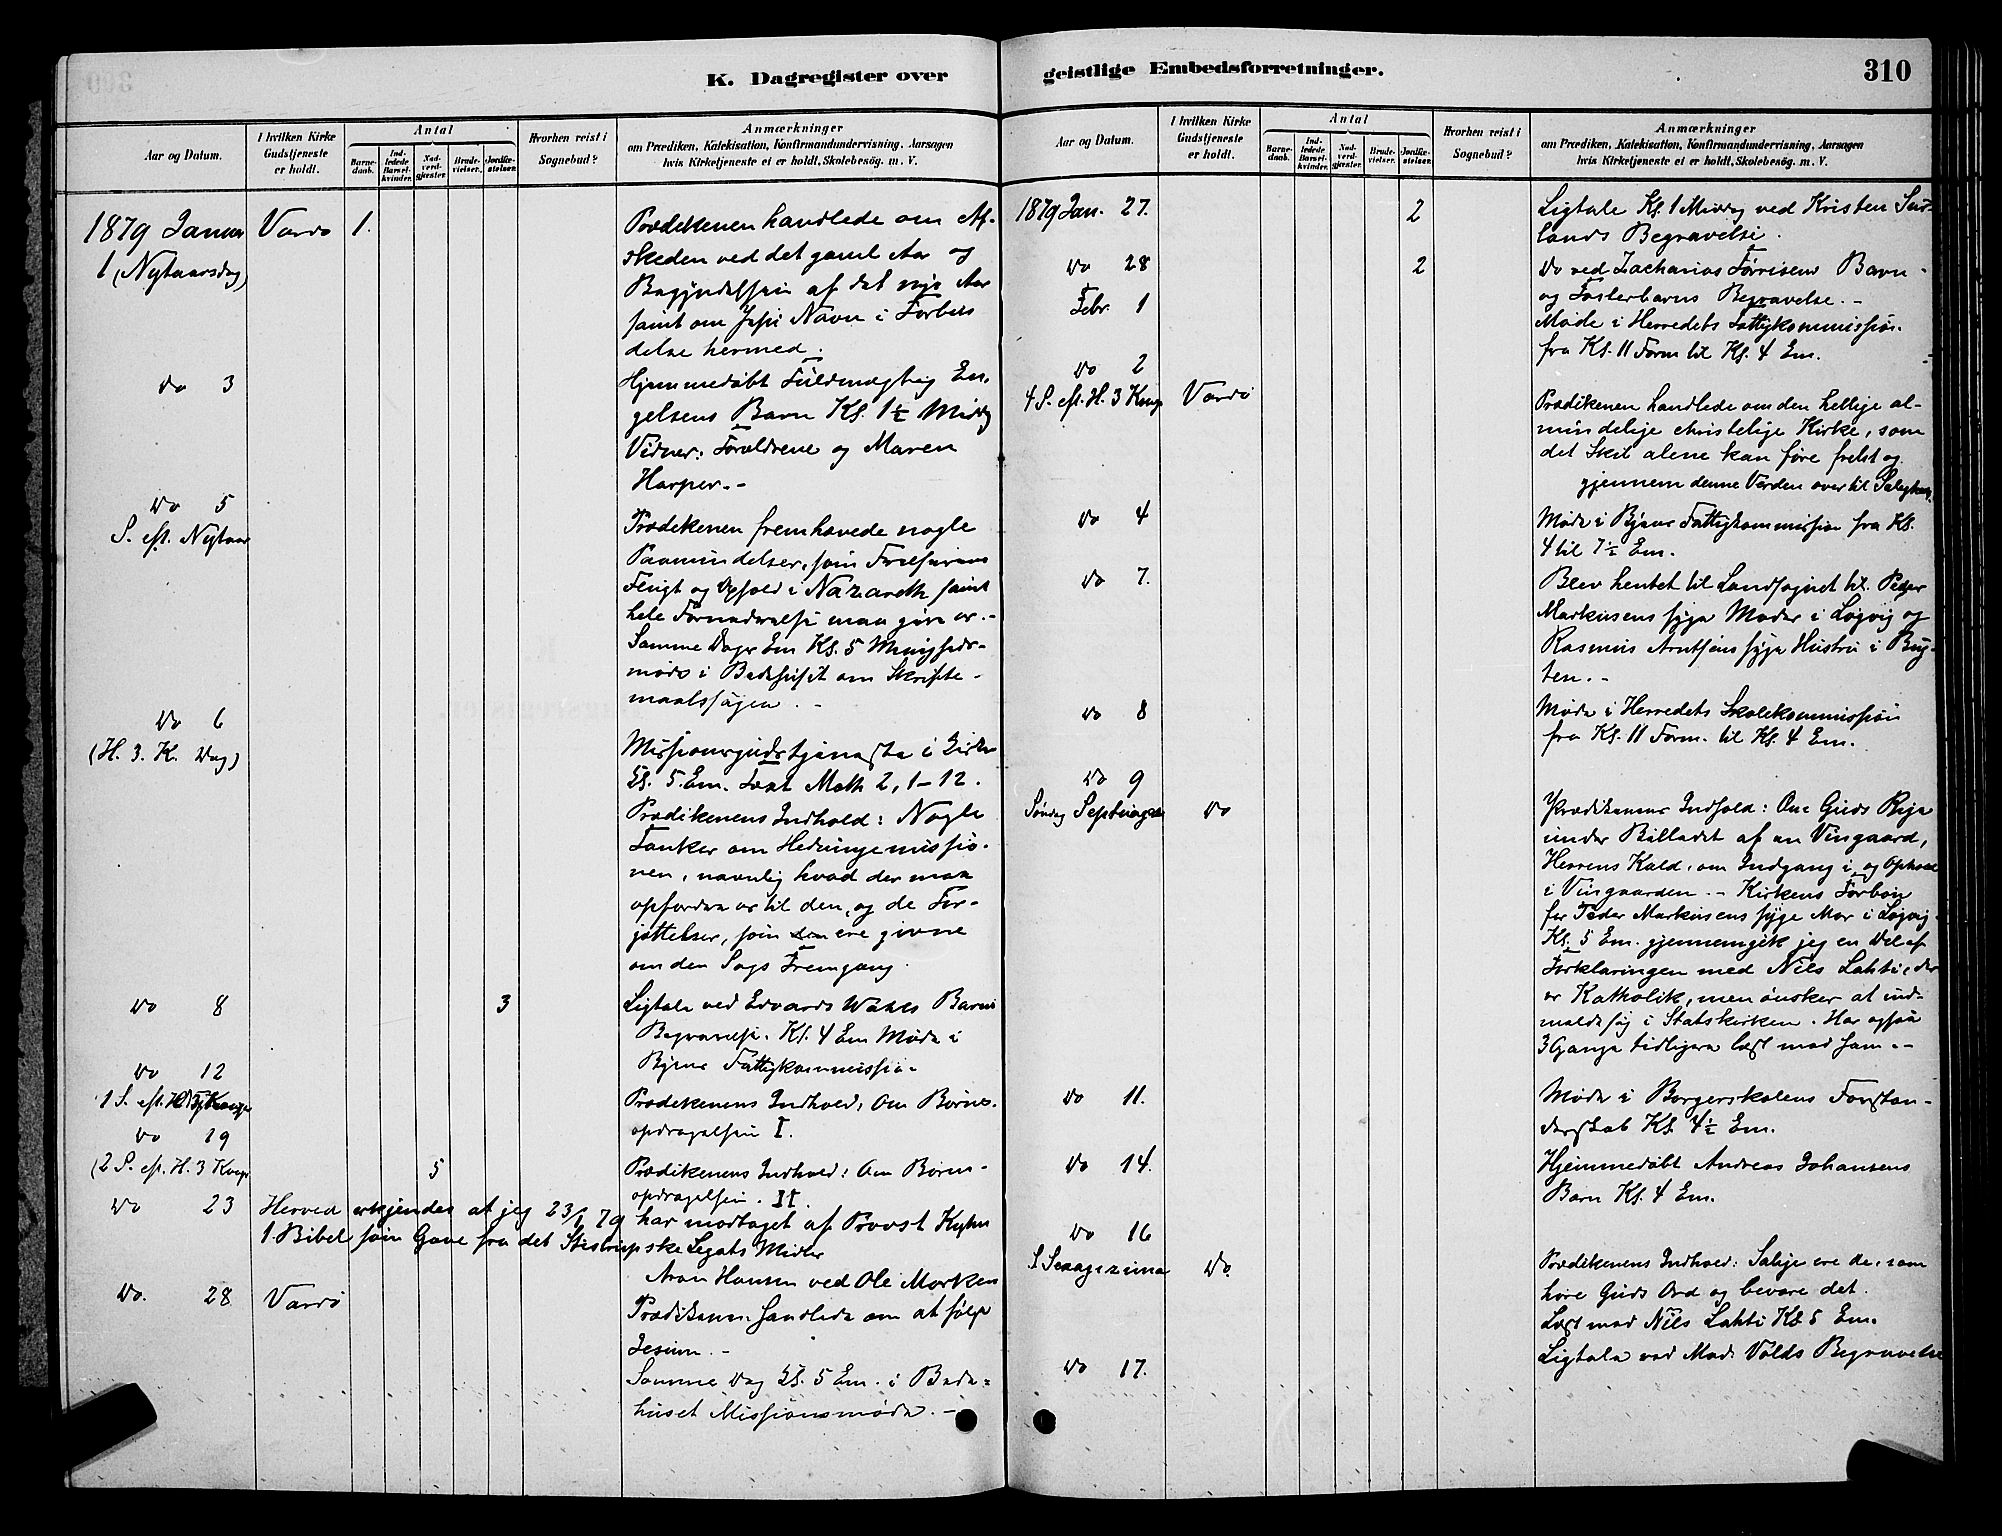 K. Dagregister over geistlige Embedsforretninger.
310
Aar og Datum.
I hvilken Kirke Gudstjeneste er holdt.
Antal
Barnedaab.
Indledede Barselkvinder.
Nadverdgjæster.
Brudevielser.
Jordfæstelser.
Hvorhen reist i Sognebud?
Anmærkninger
om Prædiken, Katekisation, Konfirmandundervisning, Aarsagen
hvis Kirketjeneste ei er holdt, Skolebesög. m. V.
1879 Januar Vardö 1.
1 (Nytaarsdag)
Prædikenen handlede om Af-
skeden ved det gamle Aar og
Begyndelsen af det nye Aar
samt om Jesu Navn i Forbin
delse hermed.
Do 3
Hjemmedøbt Fuldmægtig En-
gelsens Barn Kl. 1½ Midd
Vidner: Forældrene og Maren
Harper.-
Do 5
S. eft. Nytaar
Prædikenen fremhævede nogle
Paamindelser, som Frelserens
Flugt og Ophold i Nazareth samt
hele Fornedrelse maa give os.-
Samme Dags Em Kl. 5 Menigheds-
møde i Bedehuset om Skrifte-
maalssagen.-
Do 6
(H. 3. K. Dag)
Missionsgudstjeneste i Kirken
Kl. 5. Em. Text Math 2, 1-12.
Prædikenens Indhold: Nogle
Tanker om Hedningemissio-
nen, navnlig hvad der maa
opfordre os til den, og de For-
jættelser, som ere givne
om den Sags Fremgang.
Do 8 3
Ligtale ved Edvards Barns
Begravelse. Kl. 4 Em Møde i
Byens Fattigkommission
Do 12
1 S. eft.
Prædikenens Indhold: Om Børne-
opdragelsen I.
Do 19
(2 S. eft. H. 3 Kong 5
Prædikenens Indhold: Om Børne-
opdragelsen. II.
Do 23 Herved erkjendes at jeg 23/1 79 har modtaget af Provst Kyhn
1 Bibel som Gave fra det Stistrupske Legats Midler
Aron Hansen ved Ole Morken
Do. 28 Vardö
Prædikenen handlede om at følge
Jesum.-
Samme Dag Kl. 5 Em. i Bede-
huset Missionsmøde.-
Aar og Datum.
I hvilken Kirke Gudstjeneste er holdt.
Antal
Barnedaab.
Indledede Barselkvinder.
Nadverdgjæster.
Brudevielser.
Jordfæstelser.
Hvorhen reist i Sognebud?
Anmærkninger
om Prædiken, Katekisation, Konfirmandundervisning, Aarsagen
hvis Kirketjeneste ei er holdt, Skolebesög. m. V.
1879 Jan. 27. 2
Ligtale Kl. 1 Middag ved Kristen
lands Begravelse.
Do 28 2
Do ved Zacharias Barn-
og Fosterbarns Begravelse.-
Febr. 1
Møde i Herredets Fattigkommission
fra Kl. 11 Form til Kl. 4 Em.
Do 2
4 S. eft. H. 3 Kong Vardö
Prædikenen handlede om den hellige al-
mindelige christelige Kirke, som
det Skib alene kan føre frelst og
gjennem denne Verden over til Salighed
Do 4
Møde i Byens Fattigkommission fra Kl.
4 til 7½ Em.
Do 7.
Blev hentet til Landsognet til Peder
Markusens syge Moder i Løgvig og
Rasmus Arntsens syge Hustru i Bug-
ten.-
Do 8
Møde i Herredets Skolekommission
fra Kl. 11 Form. til Kl. 4 Em.
Do 9
Søndag Septuages Do
Prædikenens Indhold: Om Guds Rige
under Billedet af en Vingaard,
Herrens Kald, om Indgang i, og Ophold
i Vingaarden.- Kirkens Forbøn
for Peder Markusens syge Mor i Løgvig-
Kl. 5 Em. gjennemgik jeg en Del af
Forklaringen med Nils Lahti, der
er Katholik, men ønsker at ind-
meldes i Statskirken. Har ogsaa
3 Gange tidligere læst med ham.-
Do 11.
Møde i Borgerskolens Forstan-
derskab Kl. 4½ Em.
Do 14.
Hjemmedøbt Andreas Johansens
Barn Kl. 4 Em.
Do 16
S Sexagesima Do.
Prædikenens Indhold: Salige ere de, som
høre Guds Ord og bevare det.
Læst med Nils Lahti Kl. 5 Em.
Do 17.
Ligtale ved Mad. Volds Begravelse